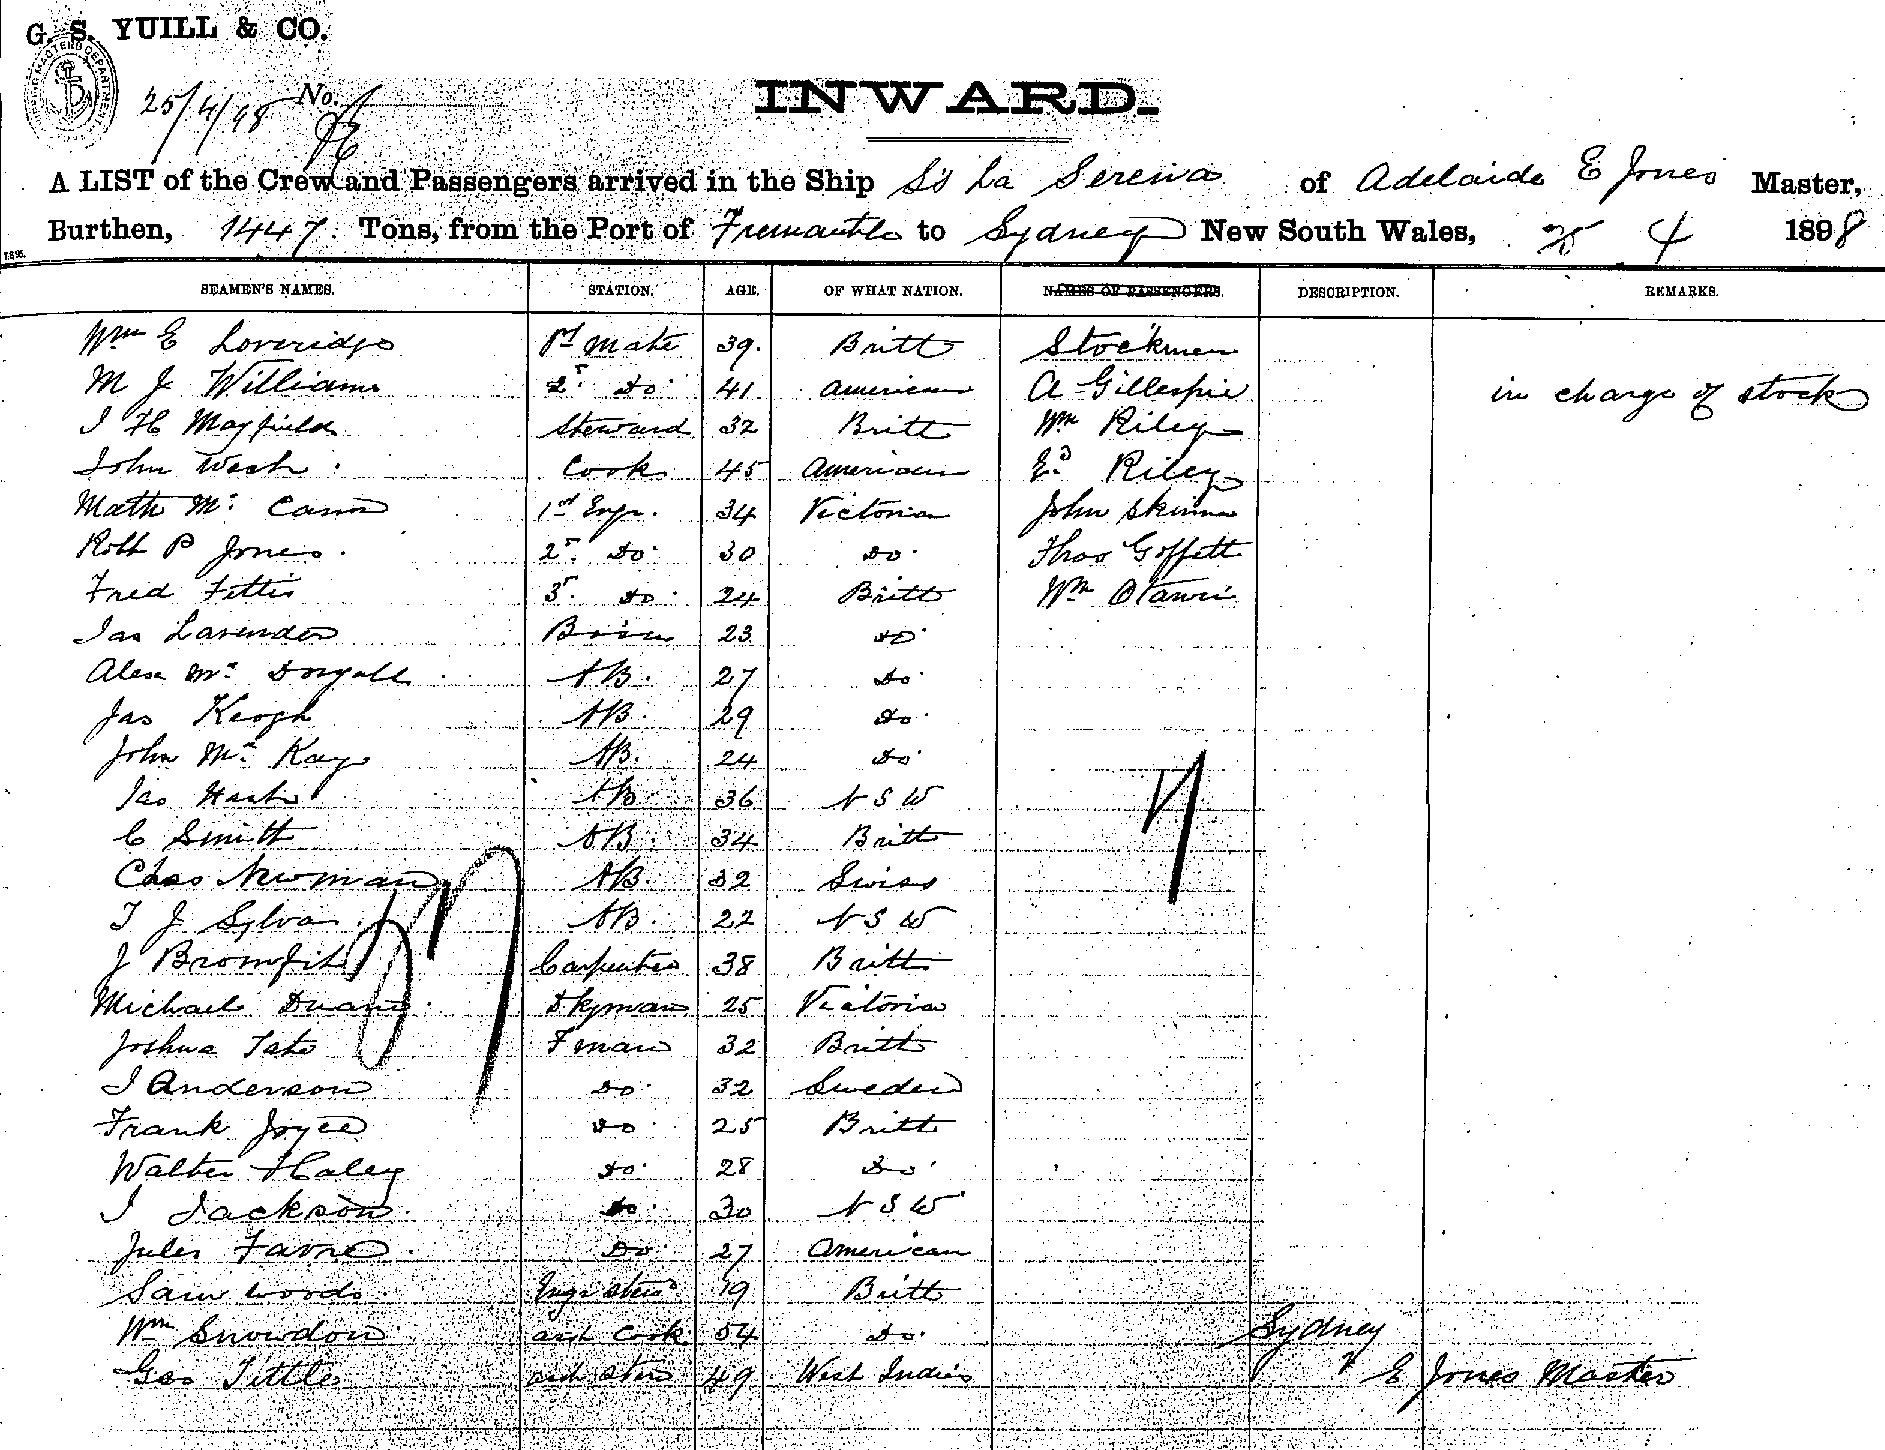 G. S. YUILL & CO.
25/4/98 No.
INWARD.
A LIST of the Crew and Passengers arrived in the Ship Ss La Serena of Adelaide E Jones Master,
Burthen, 1447 Tons, from the Port of Fremantle to Sydney New South Wales, 25 4 1898
SEAMEN'S NAMES. STATION. AGE. OF WHAT NATION. NAMES OF PASSENGERS. DESCRIPTION. REMARKS.
Wm E Loveridge 1st Mate 39. Britt Stockmen
M J Williams 2 do 41 American A Gillespie in charge of stock
J H Mayfield Steward 32 Britt Wm Riley
John Cook 45 American Ed Riley
Math Mc Cann 1st Engr. 34 Victoria John Skinner
Robt P Jones. 2 do 30 do Thos Goffett
Fred Fettis 3 do 24 Britt Wm
Jas Lavender Bosun 23 do
Alex Mc Dougall AB. 27 do
Jas Keogh AB. 29 do
John Mc Kay AB. 24 do
Jas AB. 36 N S W
C Smith AB. 34 Britt
Chas Newman AB. 32 Swiss
T J Sylva AB. 22 N S W
J Bromfit Carpenter 38 Britt
Michael Duane Dkyman 25 Victoria
Joshua Tate Fman 32 Britt
J Anderson do 32 Sweden
Frank Joyce do 25 Britt
Walter Haley do 28 Do
J Jackson do 30 N S W
Jules Favre Do 27 American
Sam Woods Engr Stew 19 Britt
Wm Snowdon asst Cook 54 Do
Geo Tittle asst Stew 49 West Indies
57
7
Sydney
E Jones Master